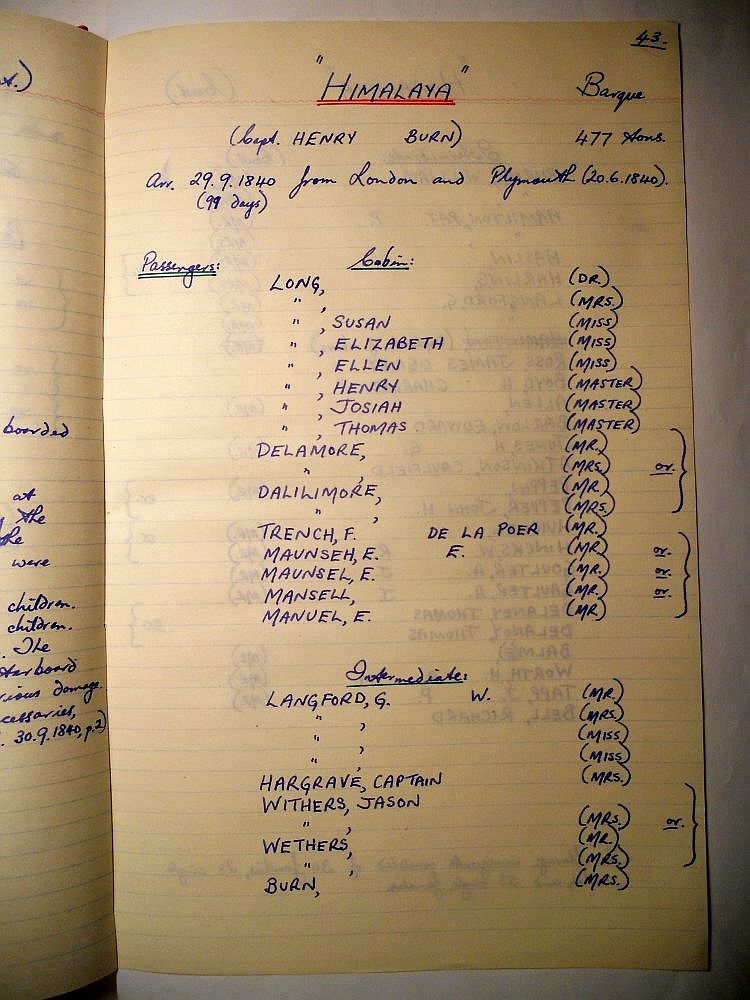 43.
"HIMALAYA" Barque
(Capt. HENRY BURN) 477 Tons.
Arr. 29.9.1840 from London and Plymouth (20.6.1840).
(99 days)
Passengers: Cabin:
LONG, (DR.)
" , (MRS.)
" , SUSAN (MISS)
" , ELIZABETH (MISS)
" , ELLEN (MISS)
" , HENRY (MASTER)
" , JOSIAH (MASTER)
" , THOMAS (MASTER)
DELAMORE, (MR.)
" , (MRS.) or.
DALILIMORE, (MR.)
" , (MRS.)
TRENCH, F. DE LA POER (MR.)
MAUNSEH, E. E. (MR.) or.
MAUNSEL, E. (MR.) or.
MANSELL, (MR.) or.
MANUEL, E. (MR.)
Intermediate:
LANGFORD, G. W. (MR.)
" , (MRS.)
" , (MISS)
" , (MISS)
HARGRAVE, CAPTAIN (MRS.)
WITHERS, JASON
" , (MRS.) or.
WETHERS, (MR.)
" , (MRS.)
BURN, (MRS.)
boarded
at
the
the
were
children.
children.
The
starboard
damage.
30.9.1840, p.2)